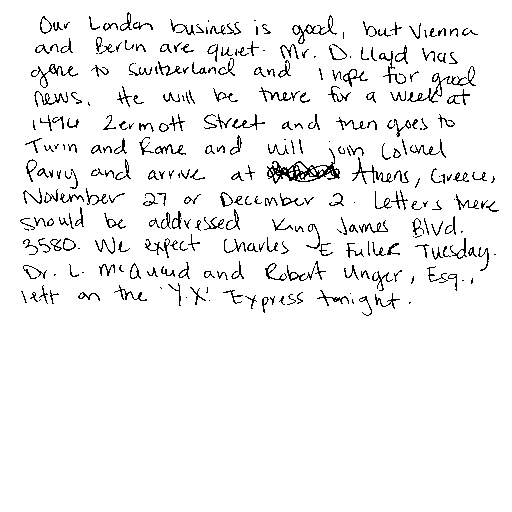 Our London business is good, but Vienna
and Berlin are quiet. Mr. D. Lloyd has
gone to Switzerland and I hope for good
news. He will be there for a week at
1496 Zermott Street and then goes to
Turin and Rome and will join Colonel
Parry and arrive at Athens, Greece,
November 27 or December 2. Letters there
should be addressed King James Blvd.
3580. We expect Charles E Fuller Tuesday.
Dr. L. McQuaid and Robert Unger, Esq.,
left on the 'Y.X.' Express tonight.